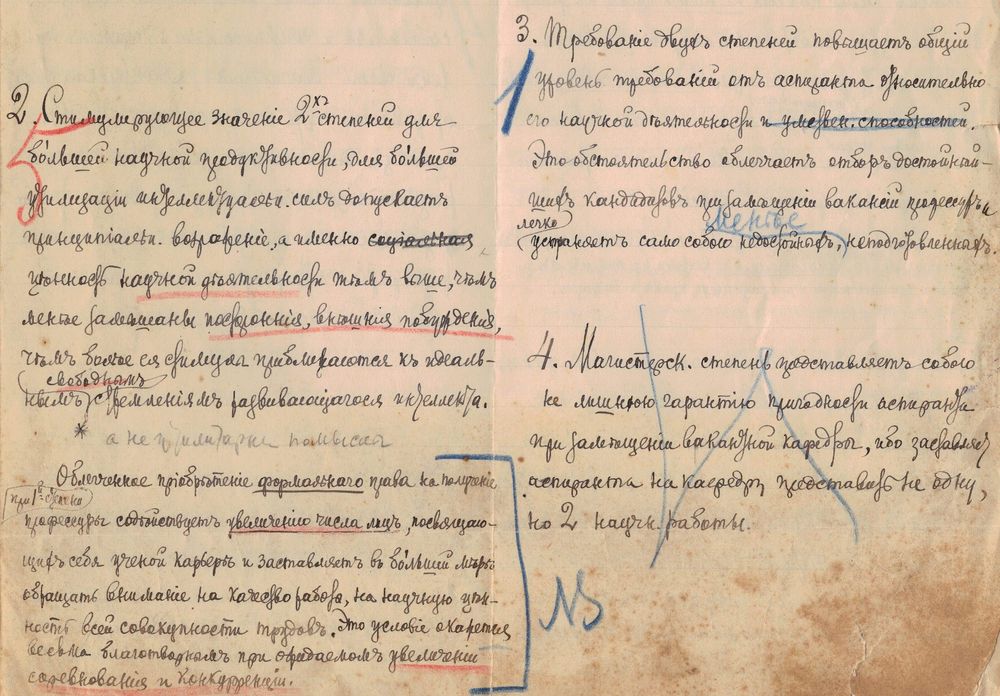 2. Стимулирующее значеніе 2-хъ степеней для
бо́льшей научной продуктивности, для бо́льшей
утилизаціи интеллектуальн. силъ допускаетъ
принципіальн. возраженіе, а именно социальная
цѣнность научной дѣятельности тѣмъ выше, чѣмъ
менѣе замѣшаны постороннія, внѣшнія побужденія,
чѣмъ болѣе ея стимулы приближаются къ идеаль-
свободнымъ
нымъ стремленіямъ развивающагося интеллекта.
* а не утилитарн. помысла
Облегченное пріобрѣтеніе формальнаго права на полученіе
при 1й степени
профессуры содѣйствуетъ увеличенію числа лицъ, посвящаю-
щихъ себя ученой карьерѣ и заставляетъ въ бо́льшей мѣрѣ
обращать вниманіе на качество работъ, на научную цѣн-
ность всей совокупности трудовъ. Это условіе окажется
весьма благотворнымъ при ожидаемомъ увеличеніи
соревнованія и конкурренціи.
5
NB
3. Требованіе двухъ степеней повышаетъ общій
1
уровень требованій отъ аспиранта относительно
его научной дѣятельности и умствен. способностей.
Это обстоятельство облегчаетъ отборъ достойнѣй-
шихъ кандидатовъ при замѣщеніи вакансій профессуръ и
легко менѣе
устраняетъ само собою недостойныхъ, неподготовленныхъ.
4. Магистерск. степень представляетъ собою
не лишнюю гарантію пригодности аспиранта
при замѣщеніи вакантной кафедры, ибо заставляетъ
аспиранта на кафедру представить не одну,
но 2 научн. работы.